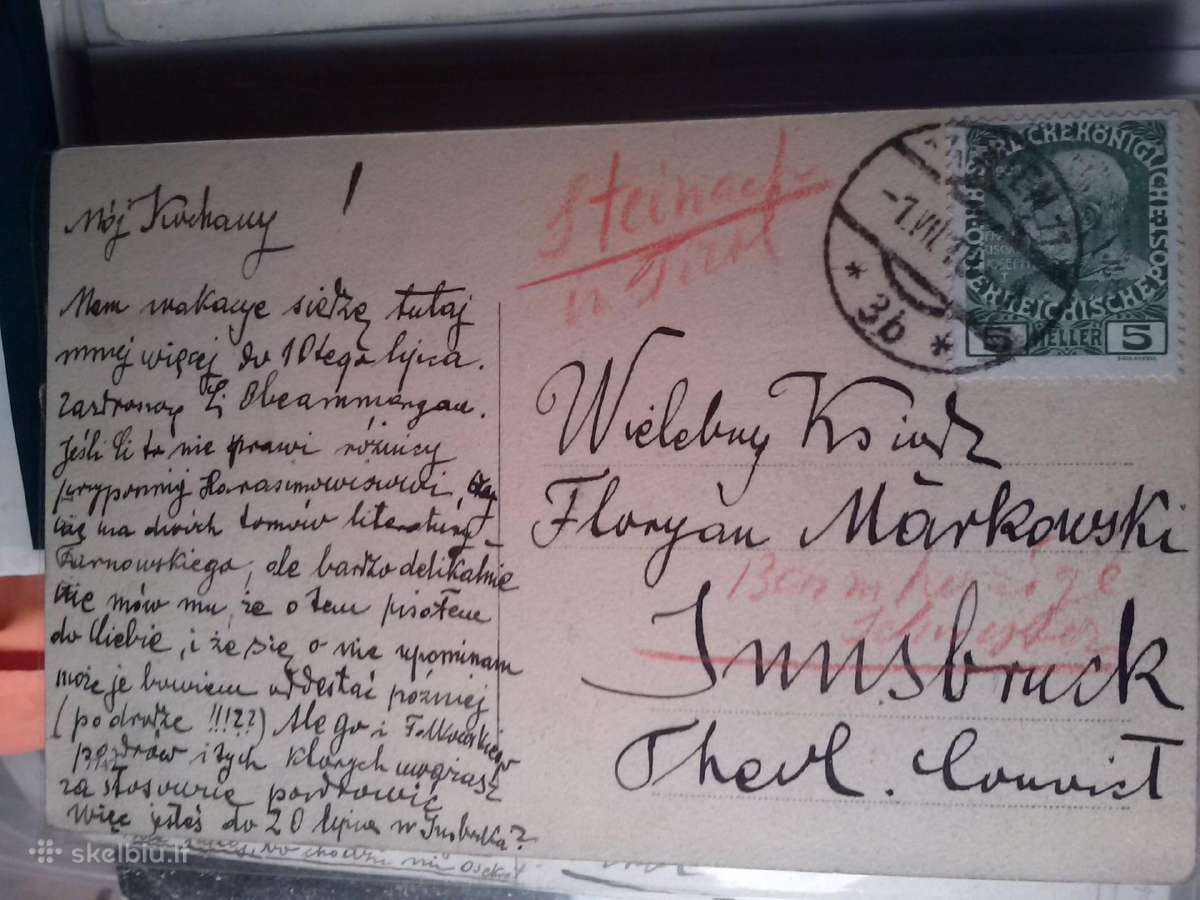 Mój Kochany!
Mam wakacye siedzę tutaj
mniej więcej do 10tego lipca.
zazdroszczę Ci Oberammergau.
Jeśli Ci to nie sprawi różnicy
przypomnij Harasimowiczowi,
że ma dwóch tomów literatury
Tarnowskiego, ale bardzo delikatnie
nie mów mu, że o tem pisałem
do Ciebie, i że się o nie upominam
może je bowiem odesłać później
(po drodze !!!??) Ale go i Falkowskiego
pozdrów i tych których uważasz
za stosowne pozdrowić
Więc jesteś do 20 lipca w Insbruku?
Steinach
in Tirol
WIEN 71
-7.VII.12
* 3b *
KAISERLICHE KÖNIGLICHE
ÖSTERREICHISCHE POST
5 HELLER 5
Wielebny Ksiądz
Floryan Markowski
Barmherzige
Schwester
Innsbruck
Theol. Convict
skelbiu.lt